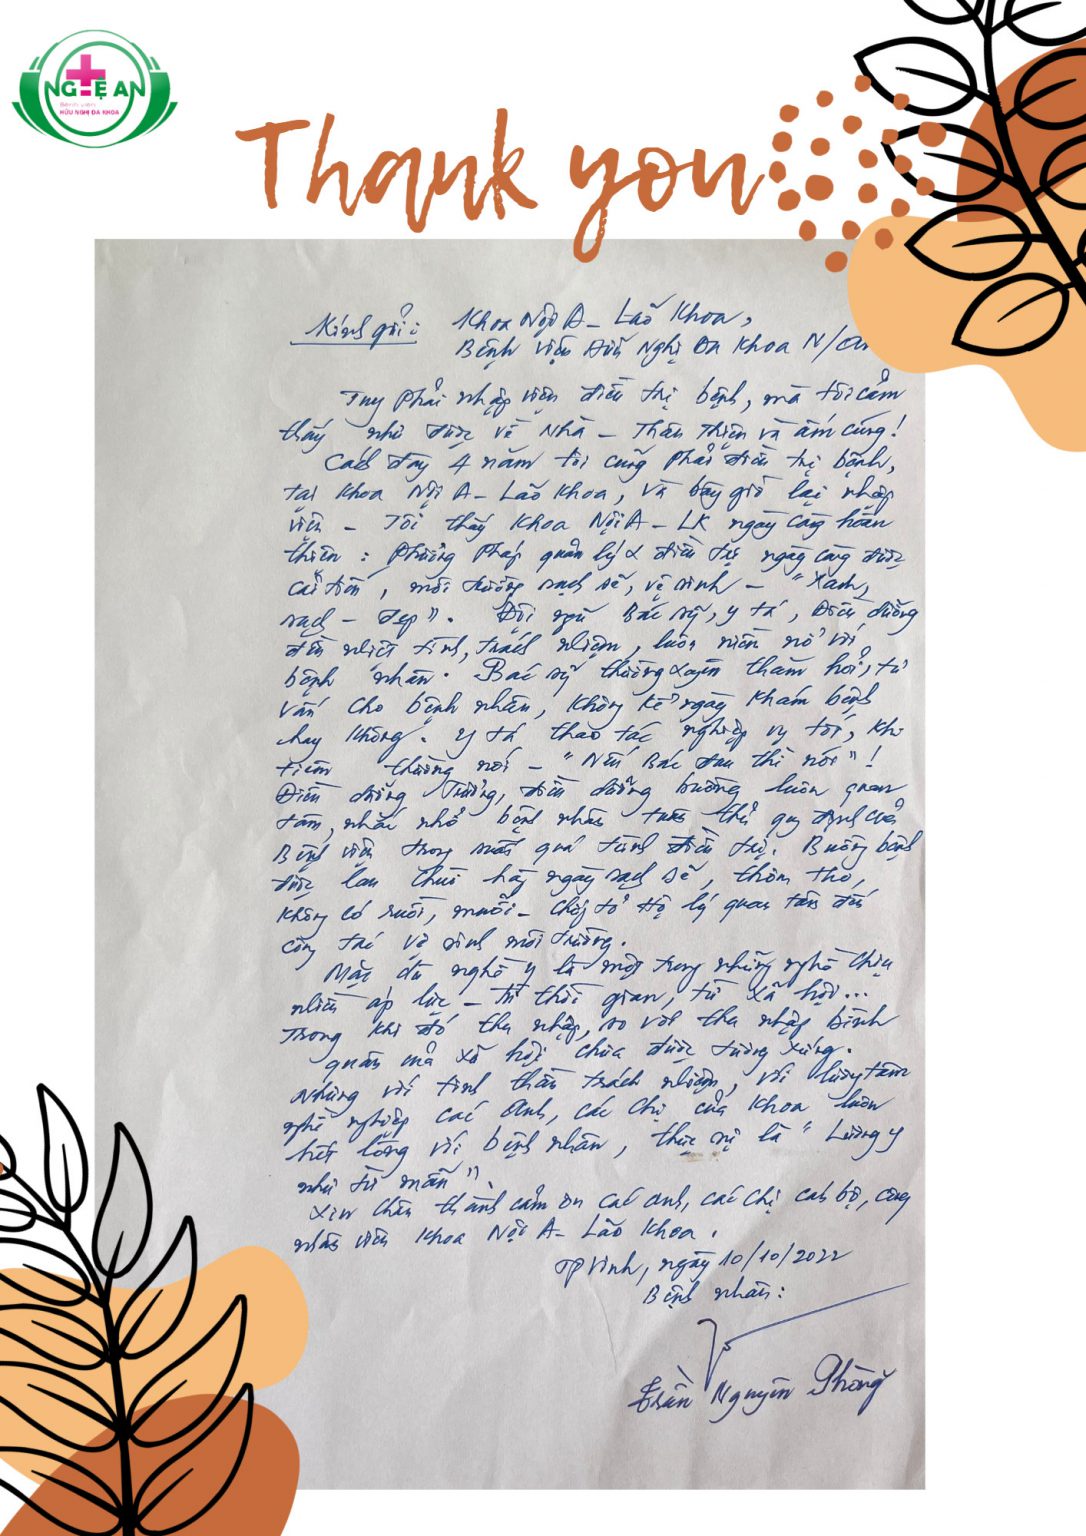 NGHỆ AN
Bệnh viện
HỮU NGHỊ ĐA KHOA
Thank you
Kính gửi: Khoa Nội A - Lão Khoa,
Bệnh viện Hữu Nghị Đa Khoa N/An
Tuy phải nhập viện điều trị bệnh, mà tôi cảm
thấy như được về Nhà - Thân Thiện và ấm cúng!
Cách đây 4 năm tôi cũng phải điều trị bệnh,
tại Khoa Nội A - Lão Khoa, và bây giờ lại nhập
viện - Tôi thấy Khoa Nội A - LK ngày càng hoàn
thiện: Phương pháp quản lý & điều trị ngày càng được
cải tiến, môi trường sạch sẽ, vệ sinh - "Xanh,
sạch - đẹp". Đội ngũ Bác sỹ, y tá, Điều dưỡng
đều nhiệt tình, trách nhiệm, luôn niềm nở với
bệnh nhân. Bác sỹ thường xuyên thăm hỏi, tư
vấn cho bệnh nhân, không kể ngày khám bệnh
hay không. Y tá thao tác nghiệp vụ tốt, khi
tiêm thường nói - "Nếu Bác đau thì nói"!
Điều dưỡng Trưởng, điều dưỡng buồng luôn quan
tâm, nhắc nhở bệnh nhân tuân thủ quy định của
Bệnh viện trong suốt quá trình điều trị. Buồng bệnh
được lau chùi hằng ngày sạch sẽ, thơm tho,
không có ruồi, muỗi - Chứng tỏ Hộ lý quan tâm đến
công tác vệ sinh môi trường.
Mặc dù nghề y là một trong những nghề chịu
nhiều áp lực - Từ thời gian, từ xã hội...
Trong khi đó thu nhập, so với thu nhập bình
quân mà xã hội chưa được tương xứng.
Nhưng với tinh thần trách nhiệm, với lương tâm
nghề nghiệp các Anh, các Chị của Khoa luôn
hết lòng với bệnh nhân, thực sự là "Lương y
như từ mẫu".
Xin chân thành cảm ơn các anh, các chị cán bộ, công
nhân viên Khoa Nội A - Lão Khoa.
TP Vinh, ngày 10/10/2022
Bệnh nhân:
Trần Nguyên Phồng